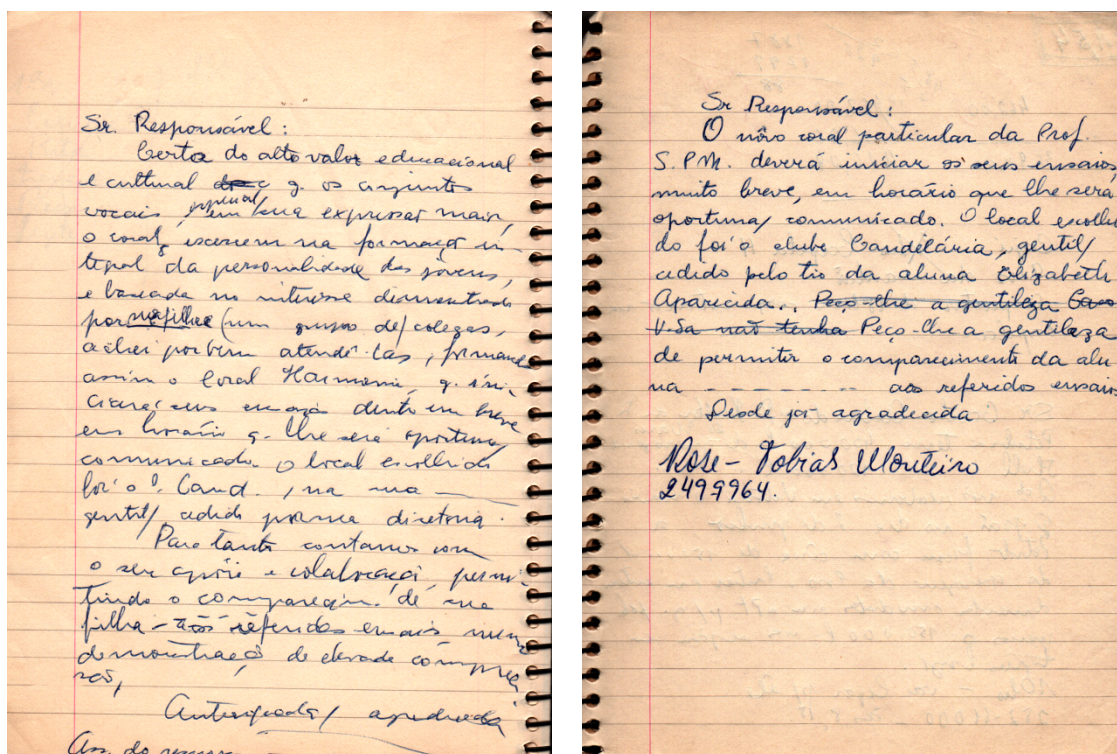 Sr. Responsável:
Certa do alto valor educacional
e cultural q. os conjuntos
vocais, em sua expressão maior,
o coral, exercem na formação in-
tegral da personalidade dos jovens,
e baseada no interesse demonstrado
por sua filha (um grupo de) colegas,
achei por bem atendê-las, formando
assim o Coral Harmonia, q. ini-
ciará seus ensaios dentro em breve
em horário q. lhe será oportuna/
comunicado. O local escolhido
foi o C. Cand., na rua
gentil/ cedido por sua diretoria.
Para tanto contamos com
o seu apôio e colaboração, permi-
tindo o comparecim. de sua
filha - aos referidos ensaios, numa
demonstração de elevada compreen-
são,
Antecipada/ agradecida
Ass. do
Sr Responsável:
O nôvo coral particular da Prof.
S.P.M. deverá iniciar os seus ensaios
muito breve, em horário que lhe será
oportuna/ comunicado. O local escolhi
do foi o clube Candelária, gentil/
cedido pelo tio da aluna Elizabeth
Aparecida.. Peço-lhe a gentileza Caso
V.Sa não tenha Peço-lhe a gentileza
de permitir o comparecimento da alu
na ---------- aos referidos ensaios
Desde já agradecida
Rose - Tobias Monteiro
2499964.